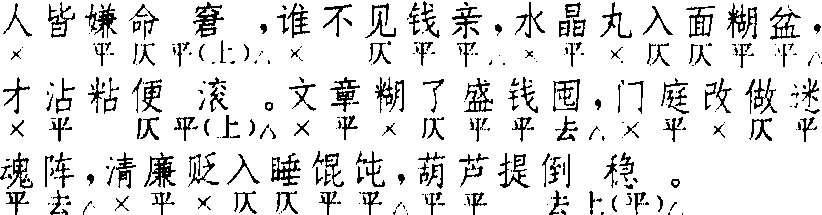 人皆嫌命窘,谁不见钱亲,水晶丸入面糊盆,
× 平仄平(上)△ × 仄平平△ × 平 × 仄仄平平△
才沾粘便滚。文章糊了盛钱囤,门庭改做迷
× 平 仄平(上)△ × 平 × 仄平平去△ × 平 × 仄平
魂阵,清廉贬入睡馄饨,葫芦提倒稳。
平去△ × 平 × 仄仄平平△ 平平 去上(平)△